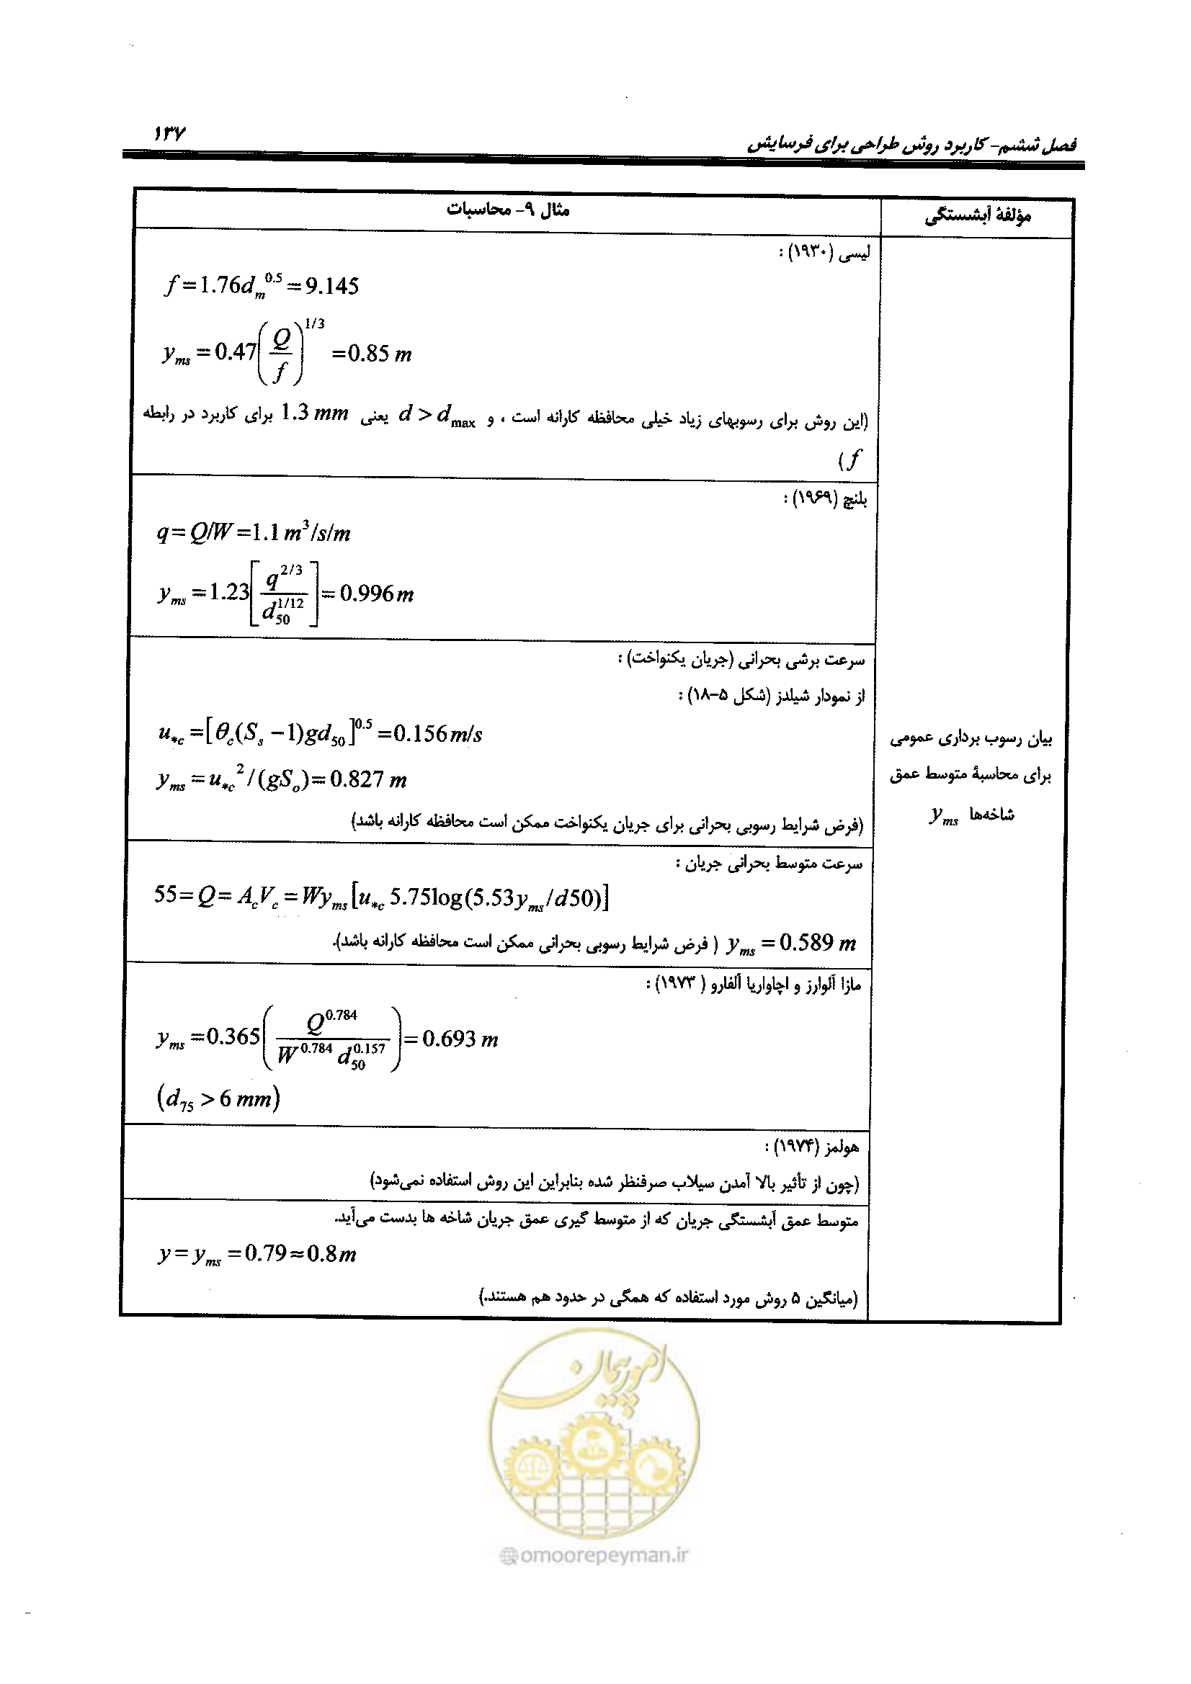 فصل ششم- کاربرد روش طراحی برای فرسایش ۱۳۷
مؤلفهٔ آبشستگی
مثال ۹- محاسبات
بیان رسوب برداری عمومی
برای محاسبهٔ متوسط عمق
شاخه‌ها y_ms
لیسی (۱۹۳۰) :
f = 1.76d_m^0.5 = 9.145
y_ms = 0.47(Q/f)^1/3 = 0.85 m
(این روش برای رسوبهای زیاد خیلی محافظه کارانه است ، و d > d_max یعنی 1.3 mm برای کاربرد در رابطه
f )
بلنچ (۱۹۶۹) :
q = Q/W = 1.1 m^3/s/m
y_ms = 1.23[q^2/3 / d_50^1/12] = 0.996 m
سرعت برشی بحرانی (جریان یکنواخت) :
از نمودار شیلدز (شکل ۵-۱۸) :
u_*c = [θ_c(S_s − 1)gd_50]^0.5 = 0.156 m/s
y_ms = u_*c^2 /(gS_o) = 0.827 m
(فرض شرایط رسوبی بحرانی برای جریان یکنواخت ممکن است محافظه کارانه باشد)
سرعت متوسط بحرانی جریان :
55 = Q = A_cV_c = Wy_ms[u_*c 5.75log(5.53y_ms/d50)]
y_ms = 0.589 m ( فرض شرایط رسوبی بحرانی ممکن است محافظه کارانه باشد).
مازا آلوارز و اچاواریا آلفارو ( ۱۹۷۳) :
y_ms = 0.365(Q^0.784 / W^0.784 d_50^0.157) = 0.693 m
(d_75 > 6 mm)
هولمز (۱۹۷۴) :
(چون از تأثیر بالا آمدن سیلاب صرفنظر شده بنابراین این روش استفاده نمی‌شود)
متوسط عمق آبشستگی جریان که از متوسط گیری عمق جریان شاخه ها بدست می‌آید.
y = y_ms = 0.79 ≈ 0.8 m
(میانگین ۵ روش مورد استفاده که همگی در حدود هم هستند.)
امور پیمان
@omoorepeyman.ir